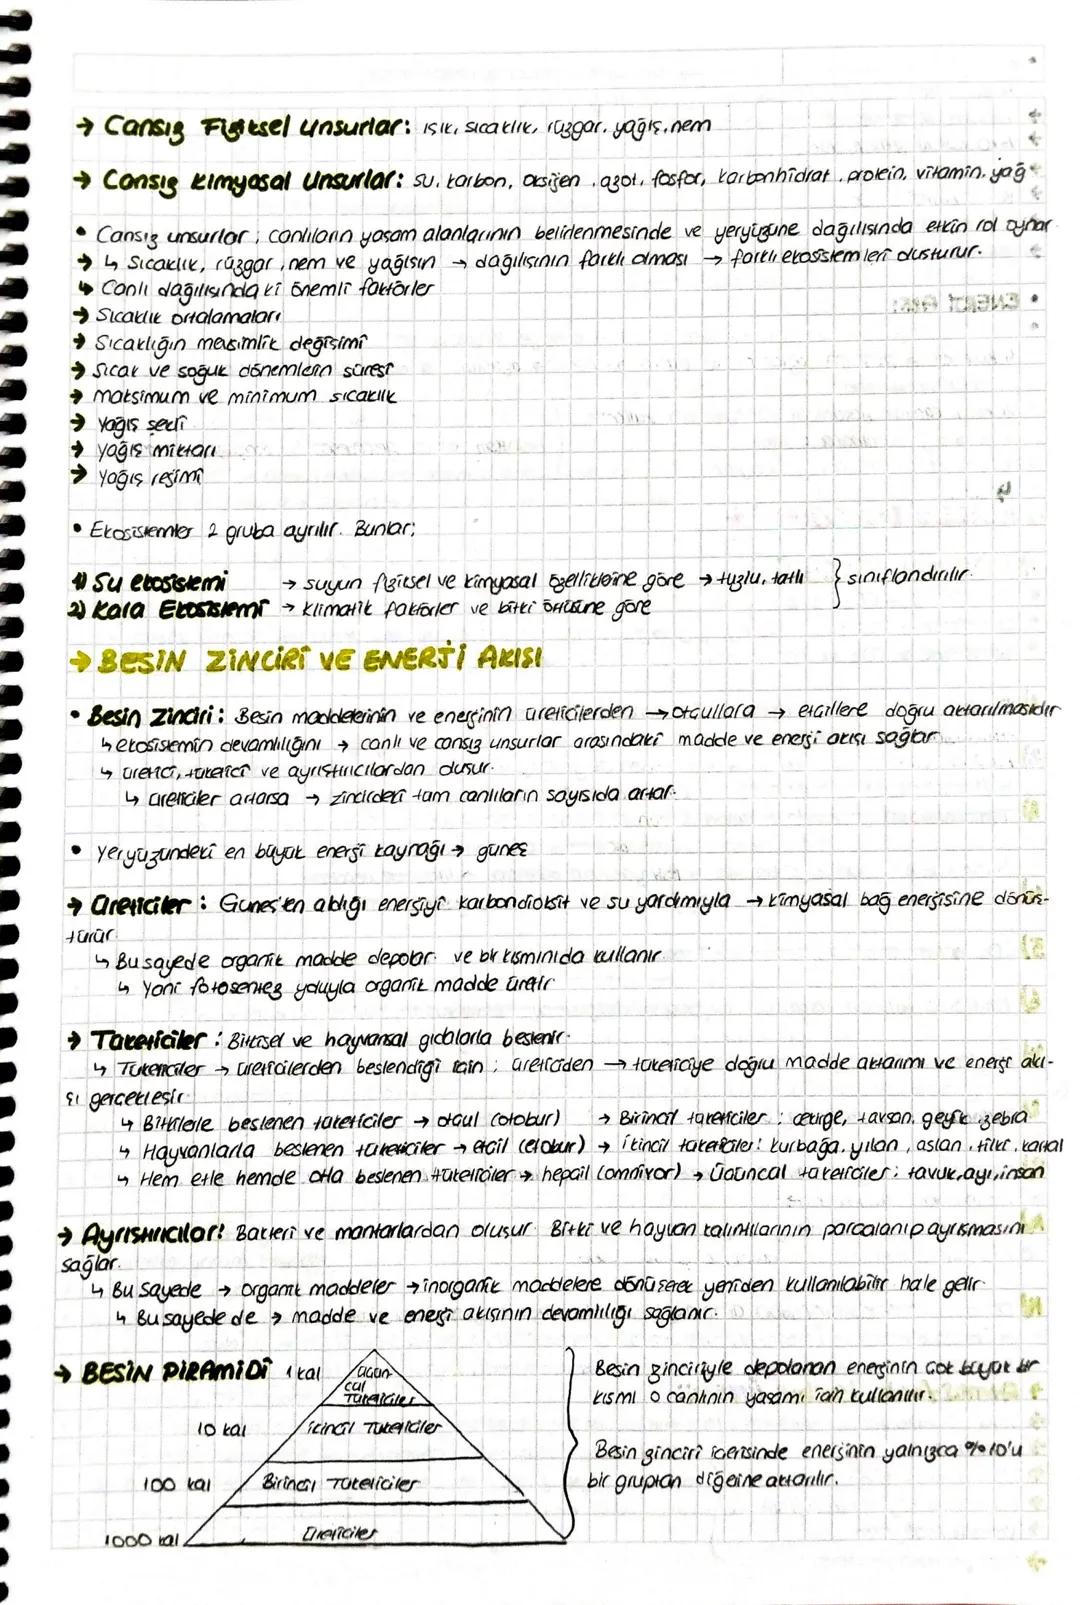 → Cansız Fiziksel Unsurlar: ışık, sıcaklık, rüzgar, yağış, nem
→ Cansız Kimyasal Unsurlar: su, karbon, oksijen, azot, fosfor, karbonhidrat, protein, vitamin, yağ
• Cansız unsurlar; canlıların yaşam alanlarının belirlenmesinde ve yeryüzüne dağılışında etkin rol oynar
→ ↳ Sıcaklık, rüzgar, nem ve yağışın → dağılışının farklı olması → farklı ekosistemleri oluşturur.
↳ Canlı dağılışındaki önemli faktörler
→ Sıcaklık ortalamaları
→ Sıcaklığın mevsimlik değişimi
→ Sıcak ve soğuk dönemlerin süresi
→ maksimum ve minimum sıcaklık
→ Yağış şekli
→ Yağış miktarı
→ Yağış rejimi
• Ekosistemler 2 gruba ayrılır. Bunlar;
1) Su ekosistemi → suyun fiziksel ve kimyasal özelliklerine göre → tuzlu, tatlı } sınıflandırılır.
2) Kara Ekosistemi → klimatik faktörler ve bitki örtüsüne göre
→ BESİN ZİNCİRİ VE ENERJİ AKIŞI
• Besin Zinciri: Besin maddelerinin ve enerjinin üreticilerden → otçullara → etçillere doğru aktarılmasıdır
↳ ekosistemin devamlılığını → canlı ve cansız unsurlar arasındaki madde ve enerji akışı sağlar
↳ üretici, tüketici ve ayrıştırıcılardan oluşur.
↳ üreticiler artarsa → zincirdeki tüm canlıların sayısıda artar.
• Yeryüzündeki en büyük enerji kaynağı → güneş
→ Üreticiler: Güneş'ten aldığı enerjiyi karbondioksit ve su yardımıyla → kimyasal bağ enerjisine dönüş-
türür.
↳ Bu sayede organik madde depolar. ve bir kısmınıda kullanır.
↳ Yani fotosentez yoluyla organik madde üretir
→ Tüketiciler: Bitkisel ve hayvansal gıdalarla beslenir.
↳ Tüketiciler → üreticilerden beslendiği için; üreticiden → tüketiciye doğru madde aktarımı ve enerji akı-
şı gerçekleşir.
↳ Bitkilerle beslenen tüketiciler → otçul (otobur) → Birincil tüketiciler: çekirge, tavşan, geyik, zebra
↳ Hayvanlarla beslenen tüketiciler → etçil (etobur) → ikincil tüketiciler: kurbağa, yılan, aslan, tilki, kartal
↳ Hem etle hemde otla beslenen tüketiciler → hepçil (omnivor) → Üçüncül tüketiciler: tavuk, ayı, insan
→ Ayrıştırıcılar: Bakteri ve mantarlardan oluşur. Bitki ve hayvan kalıntılarının parçalanıp ayrışmasını
sağlar.
↳ Bu sayede → organik maddeler → inorganik maddelere dönüşerek yeniden kullanılabilir hale gelir.
↳ Bu sayede de → madde ve enerji akışının devamlılığı sağlanır.
→ BESİN PİRAMİDİ
1 kal Üçün-
cül
Tüketiciler
10 kal İkincil Tüketiciler
100 kal Birincil Tüketiciler
1000 kal Üreticiler
Besin zinciriyle depolanan enerjinin çok büyük bir
kısmı o canlının yaşamı için kullanılır.
Besin zinciri içerisinde enerjinin yalnızca %10'u
bir gruptan diğerine aktarılır.